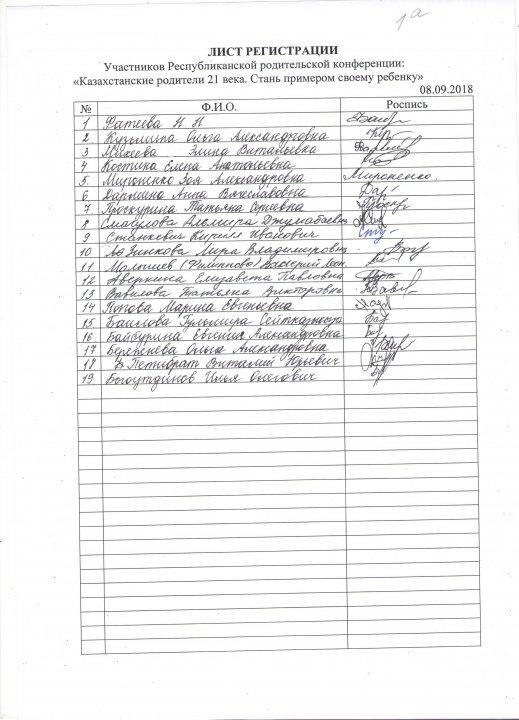 1а
ЛИСТ РЕГИСТРАЦИИ
Участников Республиканской родительской конференции:
«Казахстанские родители 21 века. Стань примером своему ребенку»
08.09.2018
№ Ф.И.О. Роспись
1 Фатеева Н Н
2 Кузьмина Ольга Александровна
3 Михеева Витальевна
4 Костина Елена Анатольевна
5. Мироненко Зоя Александровна Мироненко.
6 Дармина Анна Вячеславовна
7 Проскурина Татьяна Сергеевна
8 Смагулова Альмира Джумабаевна
9 Станкевич Кирилл Иванович
10 Лира Владимировна
11 Малышев (Филиппово) Валерий
12 Аверкина Елизавета Павловна
13 Вавилова Татьяна Викторовна
14 Попова Марина Евгеньевна
15 Баимова Гульмира
16 Байбурина Евгения Александровна
17 Ольга Александровна
18 Петибрат Виталий Юрьевич
19 Богоутдинов Илья Олегович